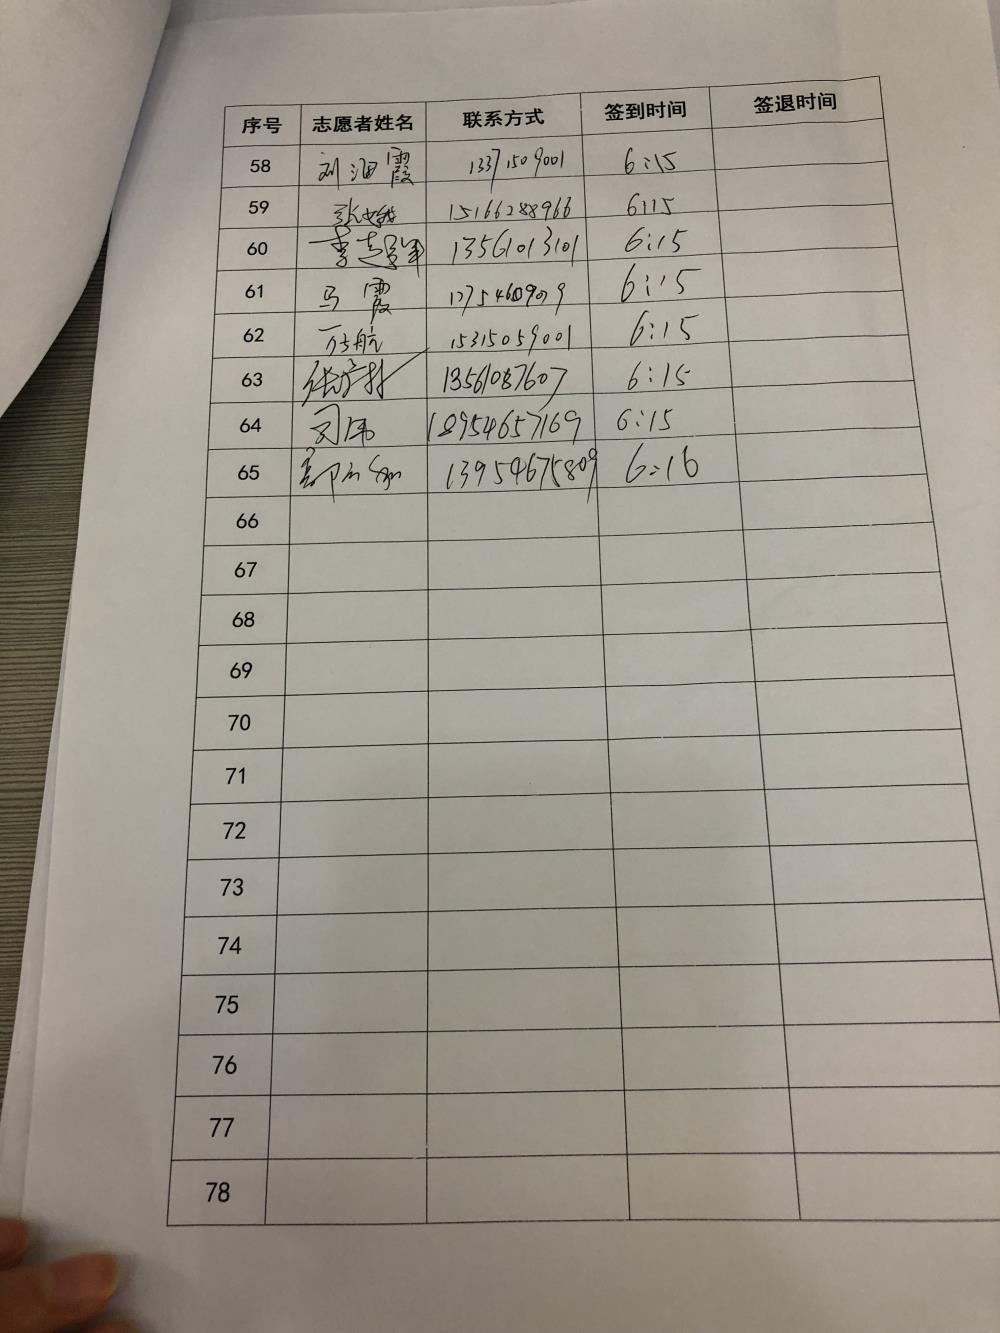 序号 志愿者姓名 联系方式 签到时间 签退时间
58 刘 霞 13371509001 6:15
59 张 15166288966 6:15
60 李超军 13561013101 6:15
61 马霞 6:15
62 万航 15315059001 6:15
63 张 13561087607 6:15
64 司伟 18954657169 6:15
65 13954675809 6:16
66
67
68
69
70
71
72
73
74
75
76
77
78